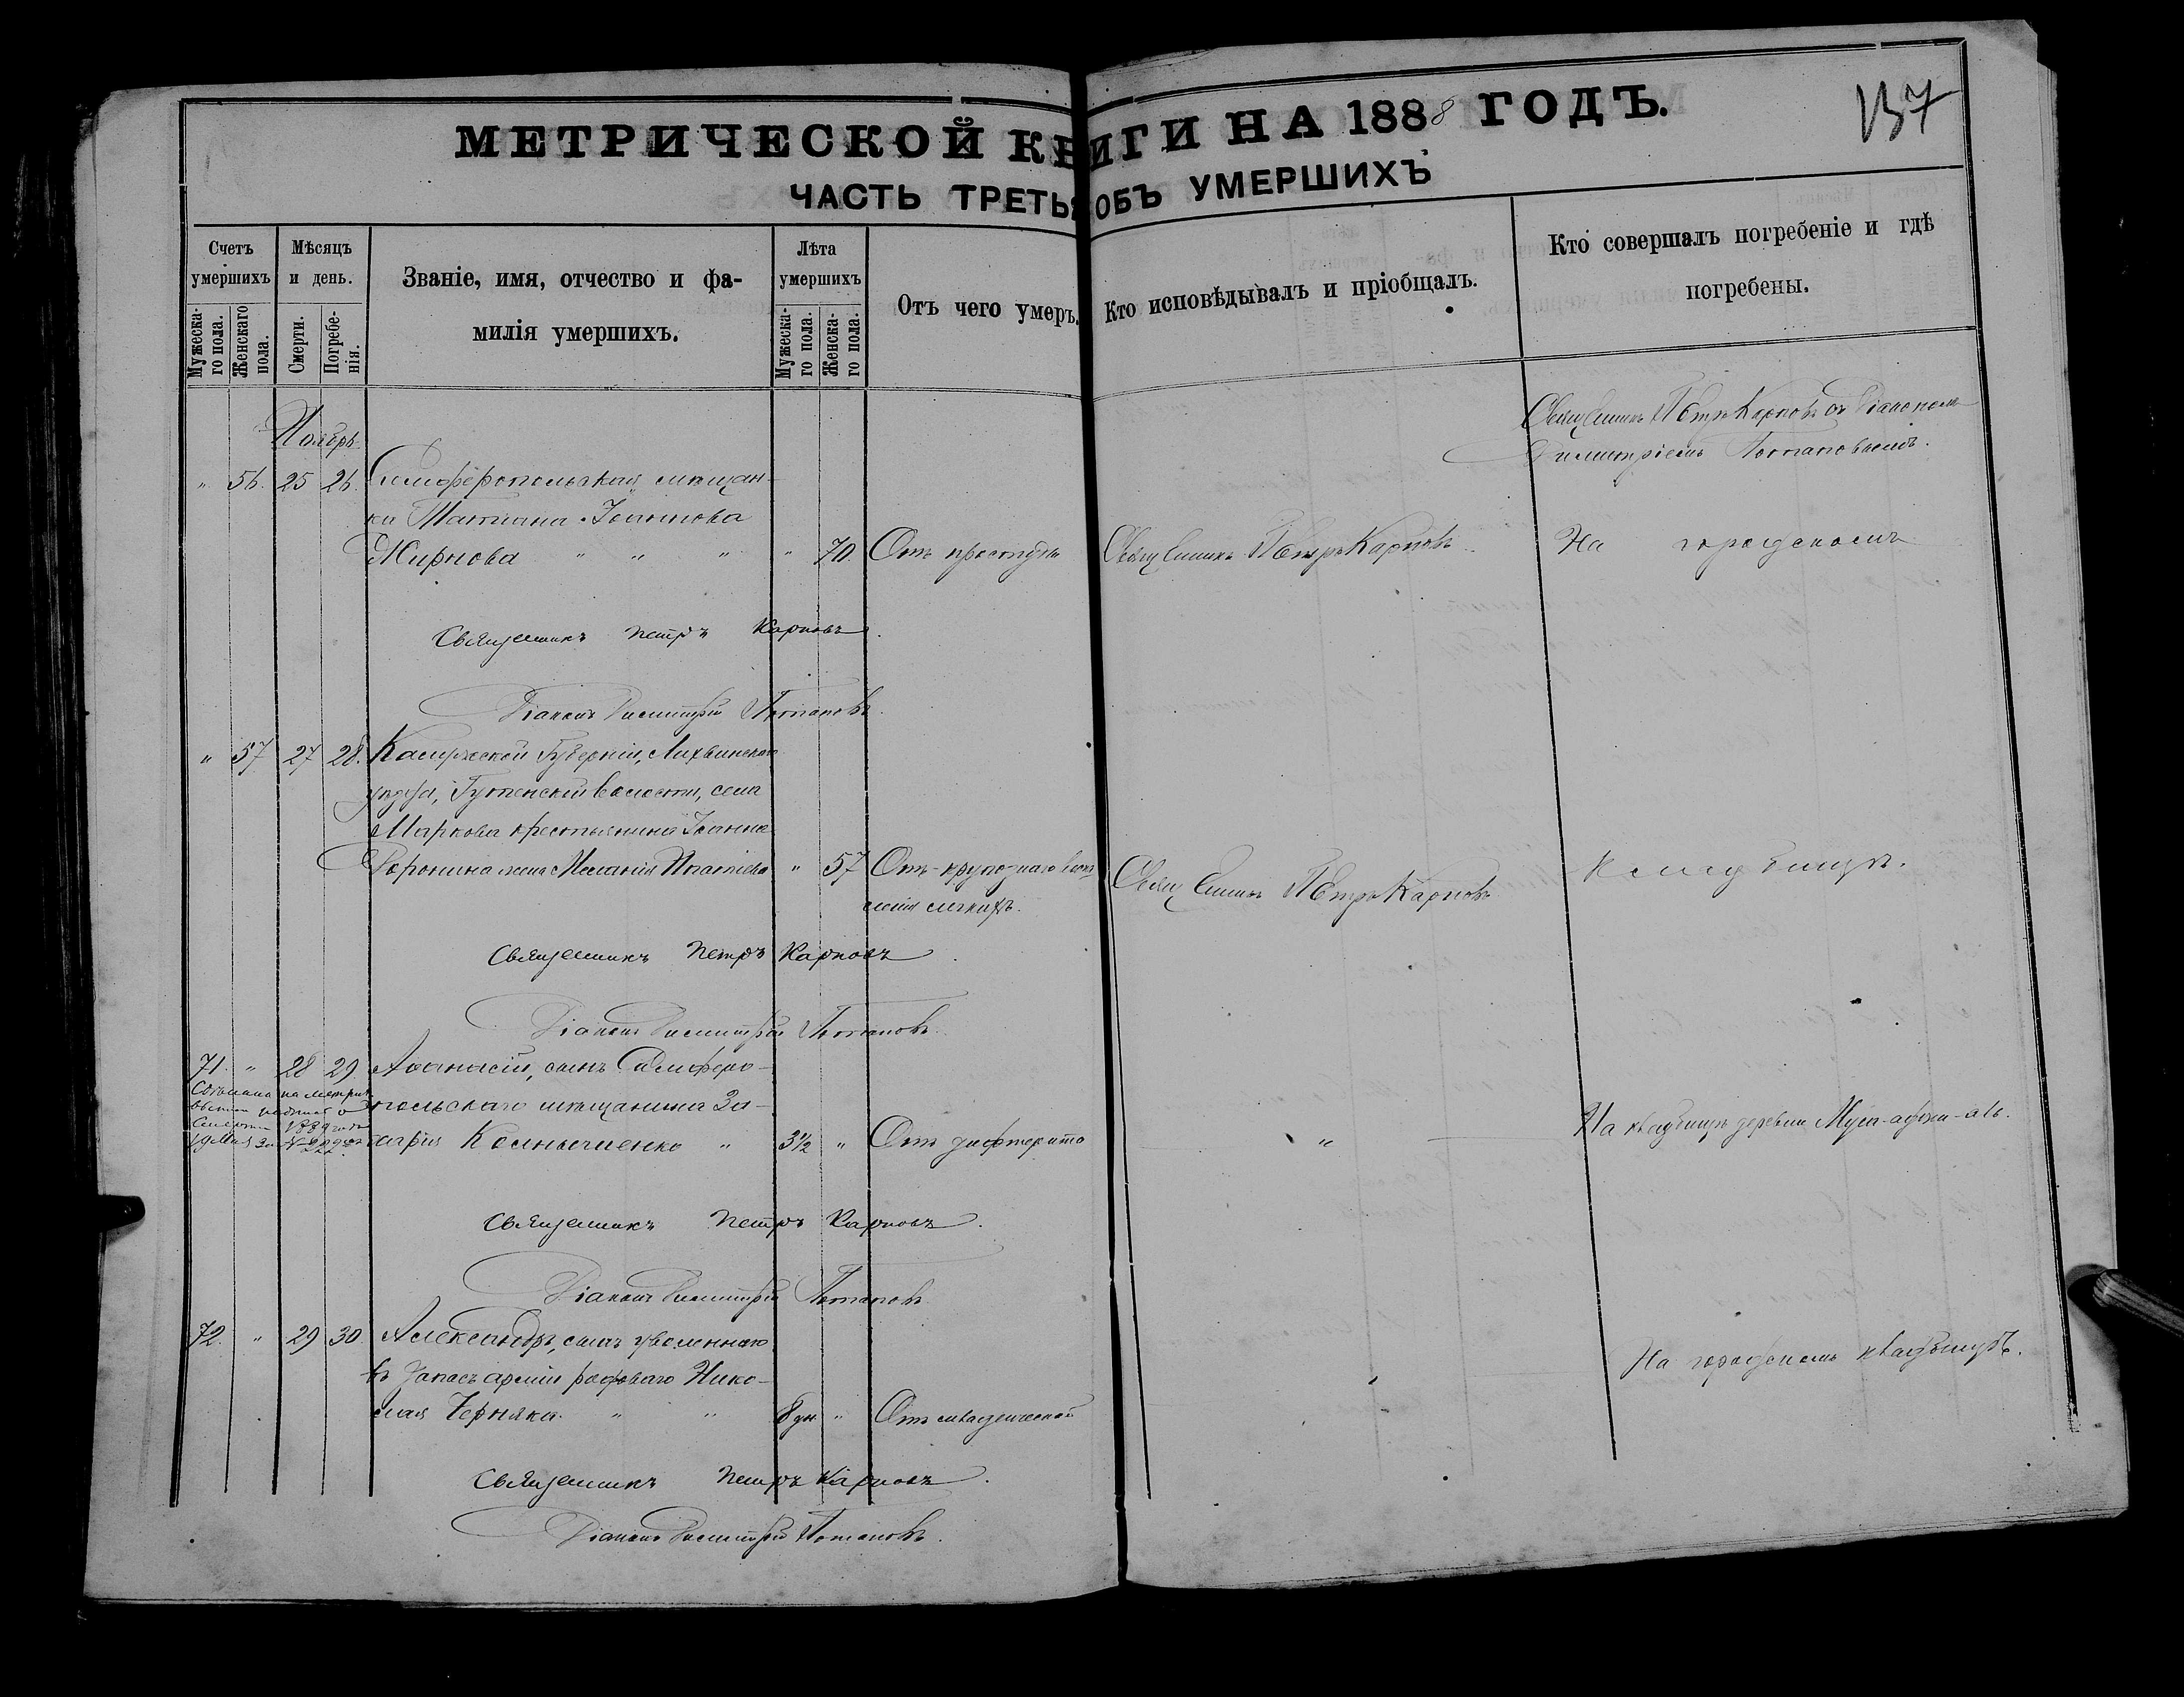 МЕТРИЧЕСКОЙ КНИГИ НА 1888 ГОДЪ.
137
ЧАСТЬ ТРЕТЬЯ ОБЪ УМЕРШИХЪ
Счетъ умершихъ
Мужеска-го пола.
Женскаго пола.
Мѣсяцъ и день.
Смерти.
Погребе-нія.
Званіе, имя, отчество и фа-
милія умершихъ.
Лѣта умершихъ
Мужеска-го пола.
Женска-го пола.
Отъ чего умеръ.
Кто исповѣдывалъ и пріобщалъ.
Кто совершалъ погребеніе и гдѣ
погребены.
Ноябрь
Священникъ Петръ Карповъ съ Діакономъ
Димитріемъ Потаповымъ.
" 56. 25 26. Симферопольская мѣщан-
ка Татіана Іоаннова
Жирнова " " " " 70. Отъ простуды Священникъ Петръ Карповъ. На городскомъ
Священникъ Петръ Карповъ.
Діаконъ Димитрій Потаповъ.
" 57 27 28. Калужской Губерніи, Лихвинскаго
уѣзда, волости, села
Маркова крестьянина Іоанна
жена Меланія Игнатіева " 57 Отъ крупознаго воспа-
ленія легкихъ. Священникъ Петръ Карповъ кладбищѣ.
Священникъ Петръ Карповъ.
Діаконъ Димитрій Потаповъ.
71. " 28 29 Аѳанасій, сынъ Симферо-
польскаго мѣщанина За-
харія " 3½ " Отъ дифтерита " На кладбищѣ деревни
1889 года
Священникъ Петръ Карповъ.
Діаконъ Димитрій Потаповъ.
72. " 29 30. Александръ, сынъ уволеннаго
въ запасъ арміи рядоваго Нико-
лая Черняка. " " 8 дн " Отъ младенческой На городскомъ кладбищѣ.
Священникъ Петръ Карповъ.
Діаконъ Димитрій Потаповъ.